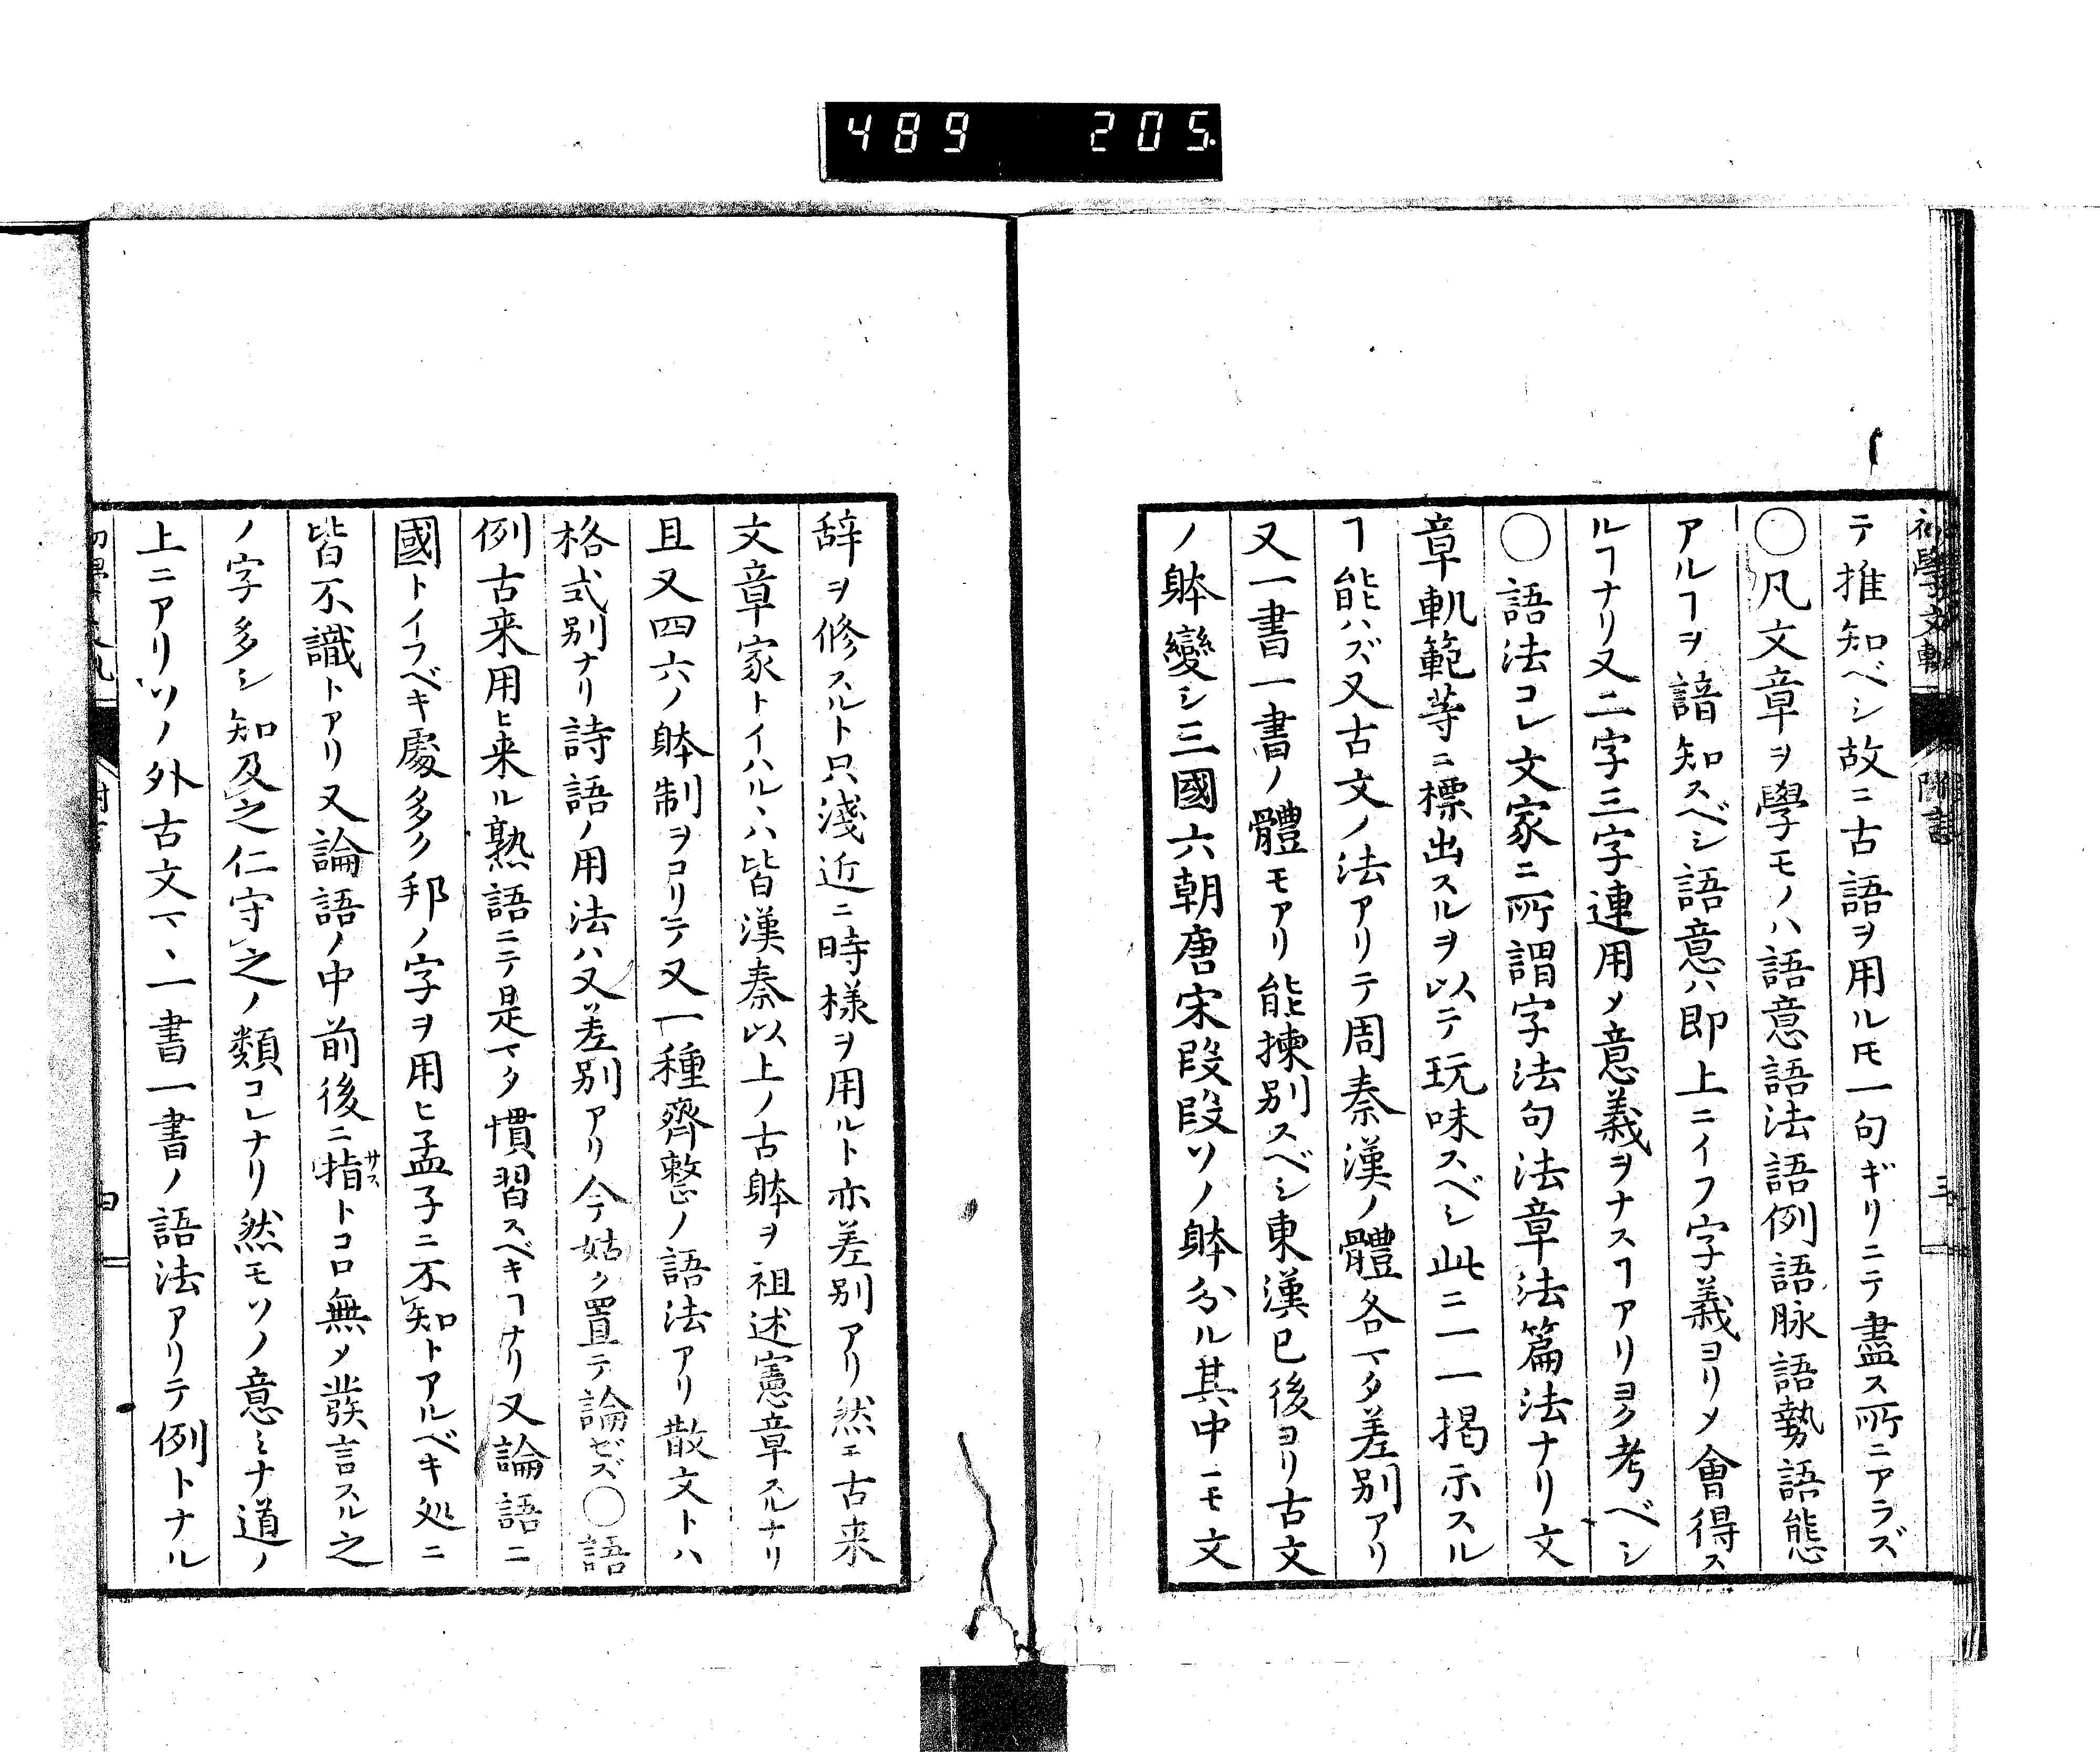 489 205
初學文軌 附言 三
テ推知ベシ故ニ古語ヲ用ルモ一句ギリニテ盡ス所ニアラズ
〇凡文章ヲ學モノハ語意語法語例語脉語勢語態
アルヿヲ諳知スベシ語意ハ即上ニイフ字義ヨリメ會得ス
ルヿナリ又二字三字連用メ意義ヲナスヿアリヨク考ベシ
〇語法コレ文家ニ所謂字法句法章法篇法ナリ文
章軌範等ニ標出スルヲ以テ玩味スベシ此ニ一一掲示スル
ヿ能ハズ又古文ノ法アリテ周秦漢ノ體各マタ差別アリ
又一書一書ノ體モアリ能揀別スベシ東漢已後ヨリ古文
ノ躰變シ三國六朝唐宋段段ソノ躰分ル其中ニモ文
辞ヲ修スルト只淺近ニ時様ヲ用ルト亦差別アリ然モ古来
文章家トイハルヽハ皆漢秦以上ノ古躰ヲ祖述憲章スルナリ
且又四六ノ躰制ヲコリテ又一種齊整ノ語法アリ散文トハ
格式別ナリ詩語ノ用法ハ又差別アリ今姑ク置テ論ゼズ〇語
例古来用ヒ来ル熟語ニテ是マタ慣習スベキヿナリ又論語ニ
國トイフベキ處多ク邦ノ字ヲ用ヒ孟子ニ不知トアルベキ処ニ
皆不識トアリ又論語ノ中前後ニ指サストコロ無メ發言スル之
ノ字多シ知及之仁守之ノ類コレナリ然モソノ意ミナ道ノ
上ニアリソノ外古文マヽ一書一書ノ語法アリテ例トナル